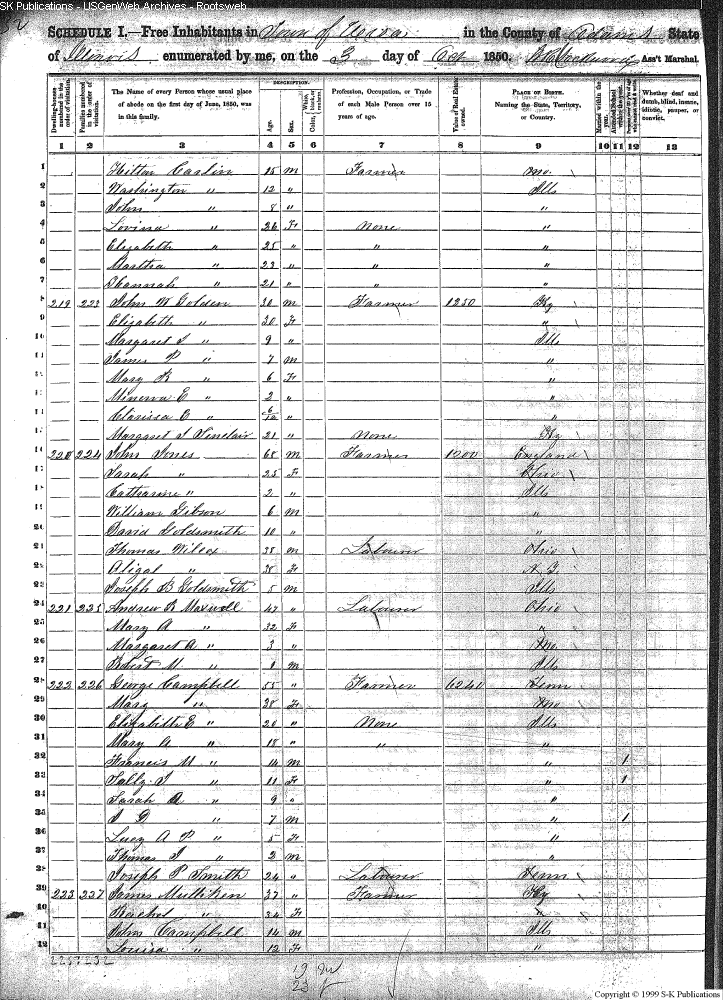 SK Publications - USGenWeb Archives - Rootsweb
SCHEDULE I.—Free Inhabitants in Town of in the County of Adams State
of Illinois enumerated by me, on the 3 day of Oct 1850. Ass't Marshal.
Dwelling-houses numbered in the order of visitation.
Families numbered in the order of visitation.
The Name of every Person whose usual place of abode on the first day of June, 1850, was in this family.
DESCRIPTION.
Age.
Sex.
Color, White, black, or mulatto.
Profession, Occupation, or Trade of each Male Person over 15 years of age.
Value of Real Estate owned.
PLACE OF BIRTH. Naming the State, Territory, or Country.
Married within the year.
Attended School within the year.
Whether deaf and dumb, blind, insane, idiotic, pauper, or convict.
1 2 3 4 5 6 7 8 9 10 11 12 13
1 Carlin 15 m Farmer Mo.
2 Washington " 12 " Ills
3 John " 8 " "
4 Lovina " 26 F None "
5 Elizabeth " 25 " " "
6 Martha " 23 " " "
7 Hannah " 21 " " "
8 219 223 John W Golden 30 m Farmer 1250 Ky
9 Elizabeth " 30 F "
10 Margaret J " 9 " Ills
11 James P " 7 m "
12 Mary " 6 F "
13 Minerva E " 2 " "
14 Clarissa C " 6/12 " "
Margaret J Sinclair 21 " None Ky
220 224 John Jones 68 m Farmer 1200 England
Sarah " 25 F Ohio
Catharine " 2 " Ills
William Gibson 6 m "
David Goldsmith 10 " "
21 Thomas Wilcox 38 m Labourer Ohio
22 Abigal " 38 F
23 Joseph B Goldsmith 5 m Ills
24 221 225 Andrew R Maxwell 47 " Labourer Ohio
25 Mary A " 32 F "
26 Margaret A " 3 " Mo.
27 Robert M " 1 m Ills
28 222 226 George Campbell 55 " Farmer 6240 Tenn
29 Mary " 38 F Mo
30 Elizabeth E " 20 " None Ills
31 Mary A " 18 " " "
32 Francis M " 14 m " 1
33 Sally J " 11 F " 1
34 Sarah " 9 " "
35 " 7 m " 1
36 Lucy A P " 5 F "
Thomas J " 2 m "
38 Joseph P Smith 24 " Labourer Tenn
39 223 227 James Mulliken 37 " Farmer Ky
40 Rachel " 34 F "
41 Campbell 14 m Ills
42 Louisa " 12 F "
19
23
Copyright © 1999 S-K Publications